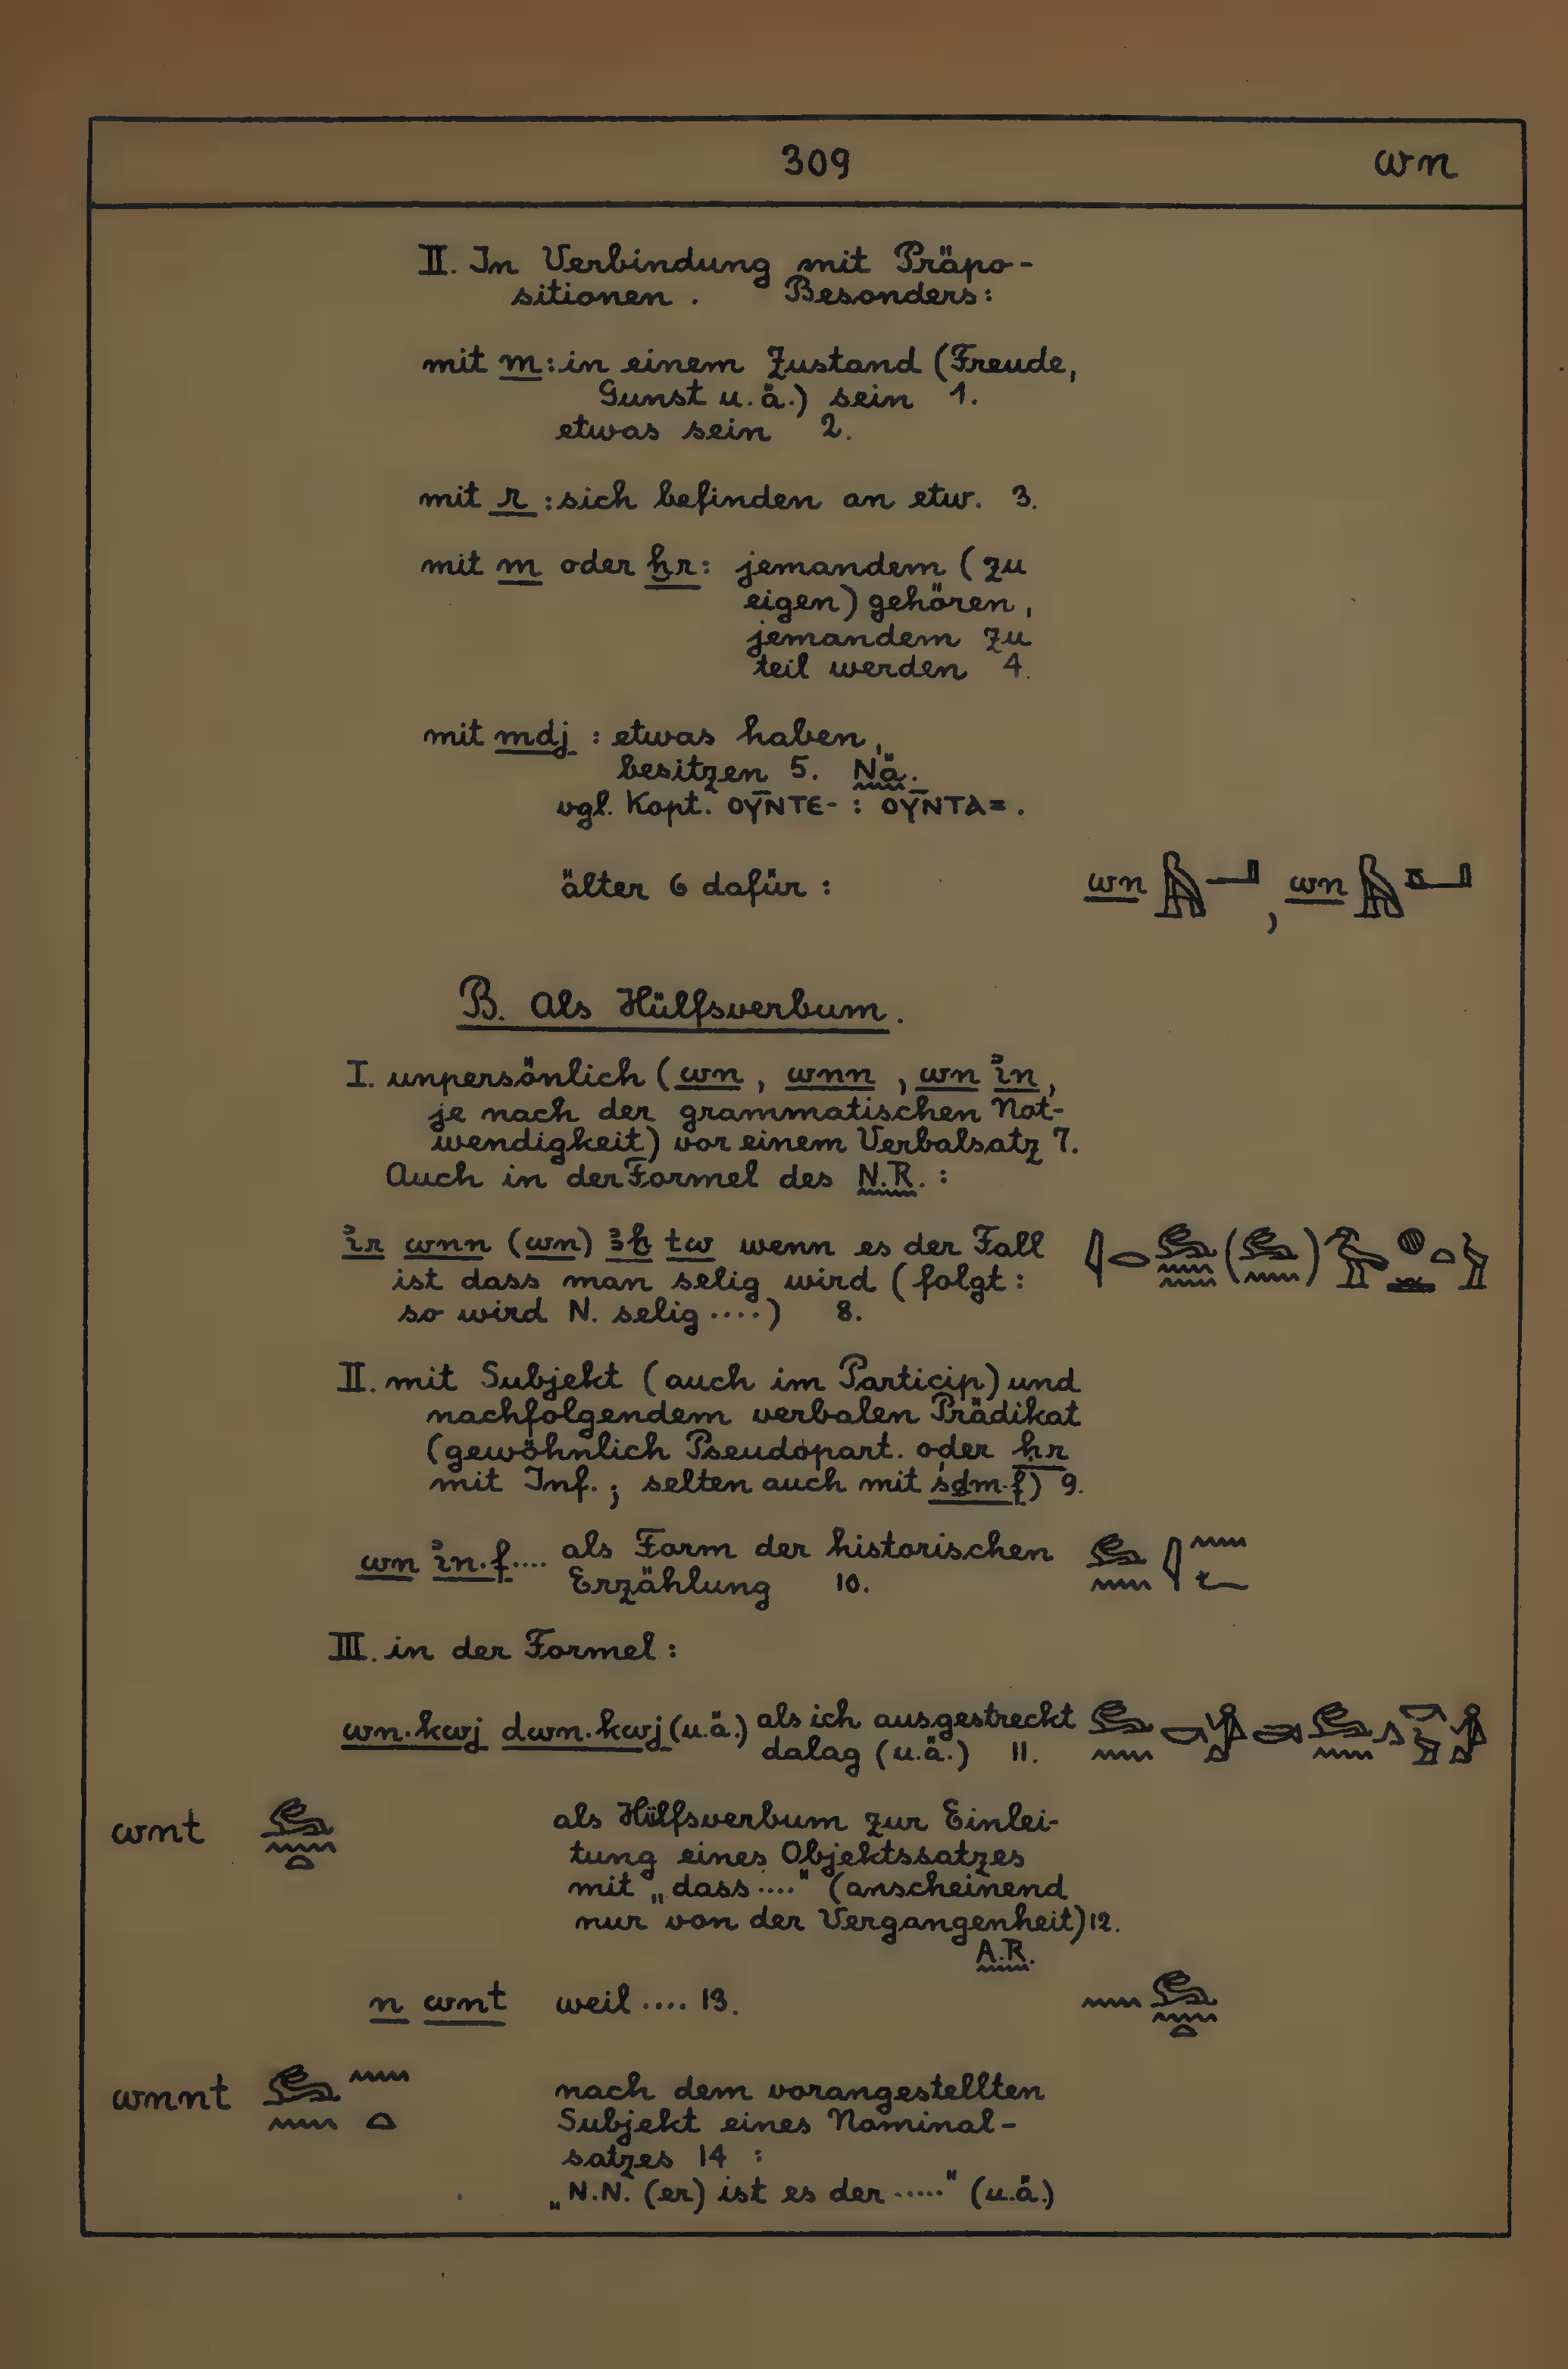 309 wn
II. In Verbindung mit Präpo-
sitionen. Besonders:
mit m: in einem Zustand (Freude,
Gunst u.ä.) sein 1.
etwas sein 2.
mit r: sich befinden an etw. 3.
mit m oder ẖr: jemandem (zu
eigen) gehören,
jemandem zu
teil werden 4.
mit mdj: etwas haben,
besitzen 5. Nä.
vgl. Kopt. ⲟⲩⲛ̅ⲧⲉ- : ⲟⲩⲛ̅ⲧⲁ⸗.
älter 6 dafür: wn , wn
B. Als Hülfsverbum.
I. unpersönlich (wn, wnn, wn ı͗n,
je nach der grammatischen Not-
wendigkeit) vor einem Verbalsatz 7.
Auch in der Formel des N.R.:
ı͗r wnn (wn) ꜣḫ tw wenn es der Fall
ist dass man selig wird (folgt:
so wird N. selig ....) 8.
II. mit Subjekt (auch im Particip) und
nachfolgendem verbalen Prädikat
(gewöhnlich Pseudopart. oder ḥr
mit Inf.; selten auch mit śḏm.f) 9.
wn ı͗n.f.... als Form der historischen
Erzählung 10.
III. in der Formel:
wn.kwj dwn.kwj (u.ä.) als ich ausgestreckt
dalag (u.ä.) 11.
wnt 𓃹𓈖𓏏 als Hülfsverbum zur Einlei-
tung eines Objektssatzes
mit „dass ...." (anscheinend
nur von der Vergangenheit) 12.
A.R.
n wnt weil .... 13. 𓈖𓃹𓈖𓏏
wnnt 𓃹𓈖𓈖𓏏 nach dem vorangestellten
Subjekt eines Nominal-
satzes 14 :
„N.N. (er) ist es der ....." (u.ä.)